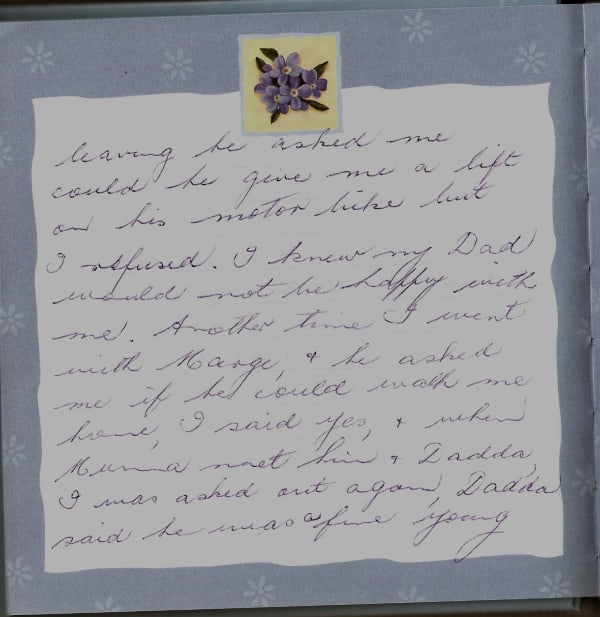 leaving he asked me
could he give me a lift
on his motor bike but
I refused. I knew my Dad
would not be happy with
me. Another time I went
with Marge, & he asked
me if he could walk me
home, I said yes, & when
Mumma met him & Dadda,
I was asked out again, Dadda
said he was a fine young